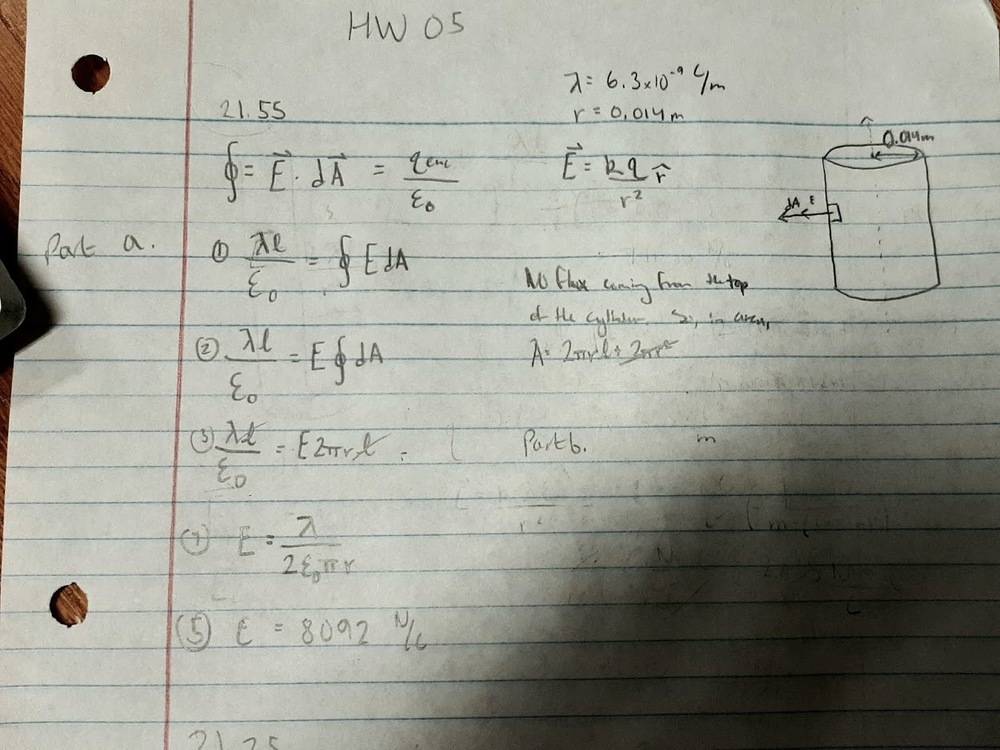 HW 05
λ = 6.3×10⁻⁹ C/m
21.55
r = 0.014m
0.014m
∮ = E⃗ · dA⃗ = qenc/ε₀
E⃗ = kq/r² r̂
dA E
Part a.
① λl/ε₀ = ∮ E dA
No flux coming from the top
of the in area,
A = 2πrl + 2πr²
② λl/ε₀ = E ∮ dA
③ λl/ε₀ = E 2πrl
Part b.
m
④ E = λ/2ε₀πr
⑤ E = 8092 N/C
21.25